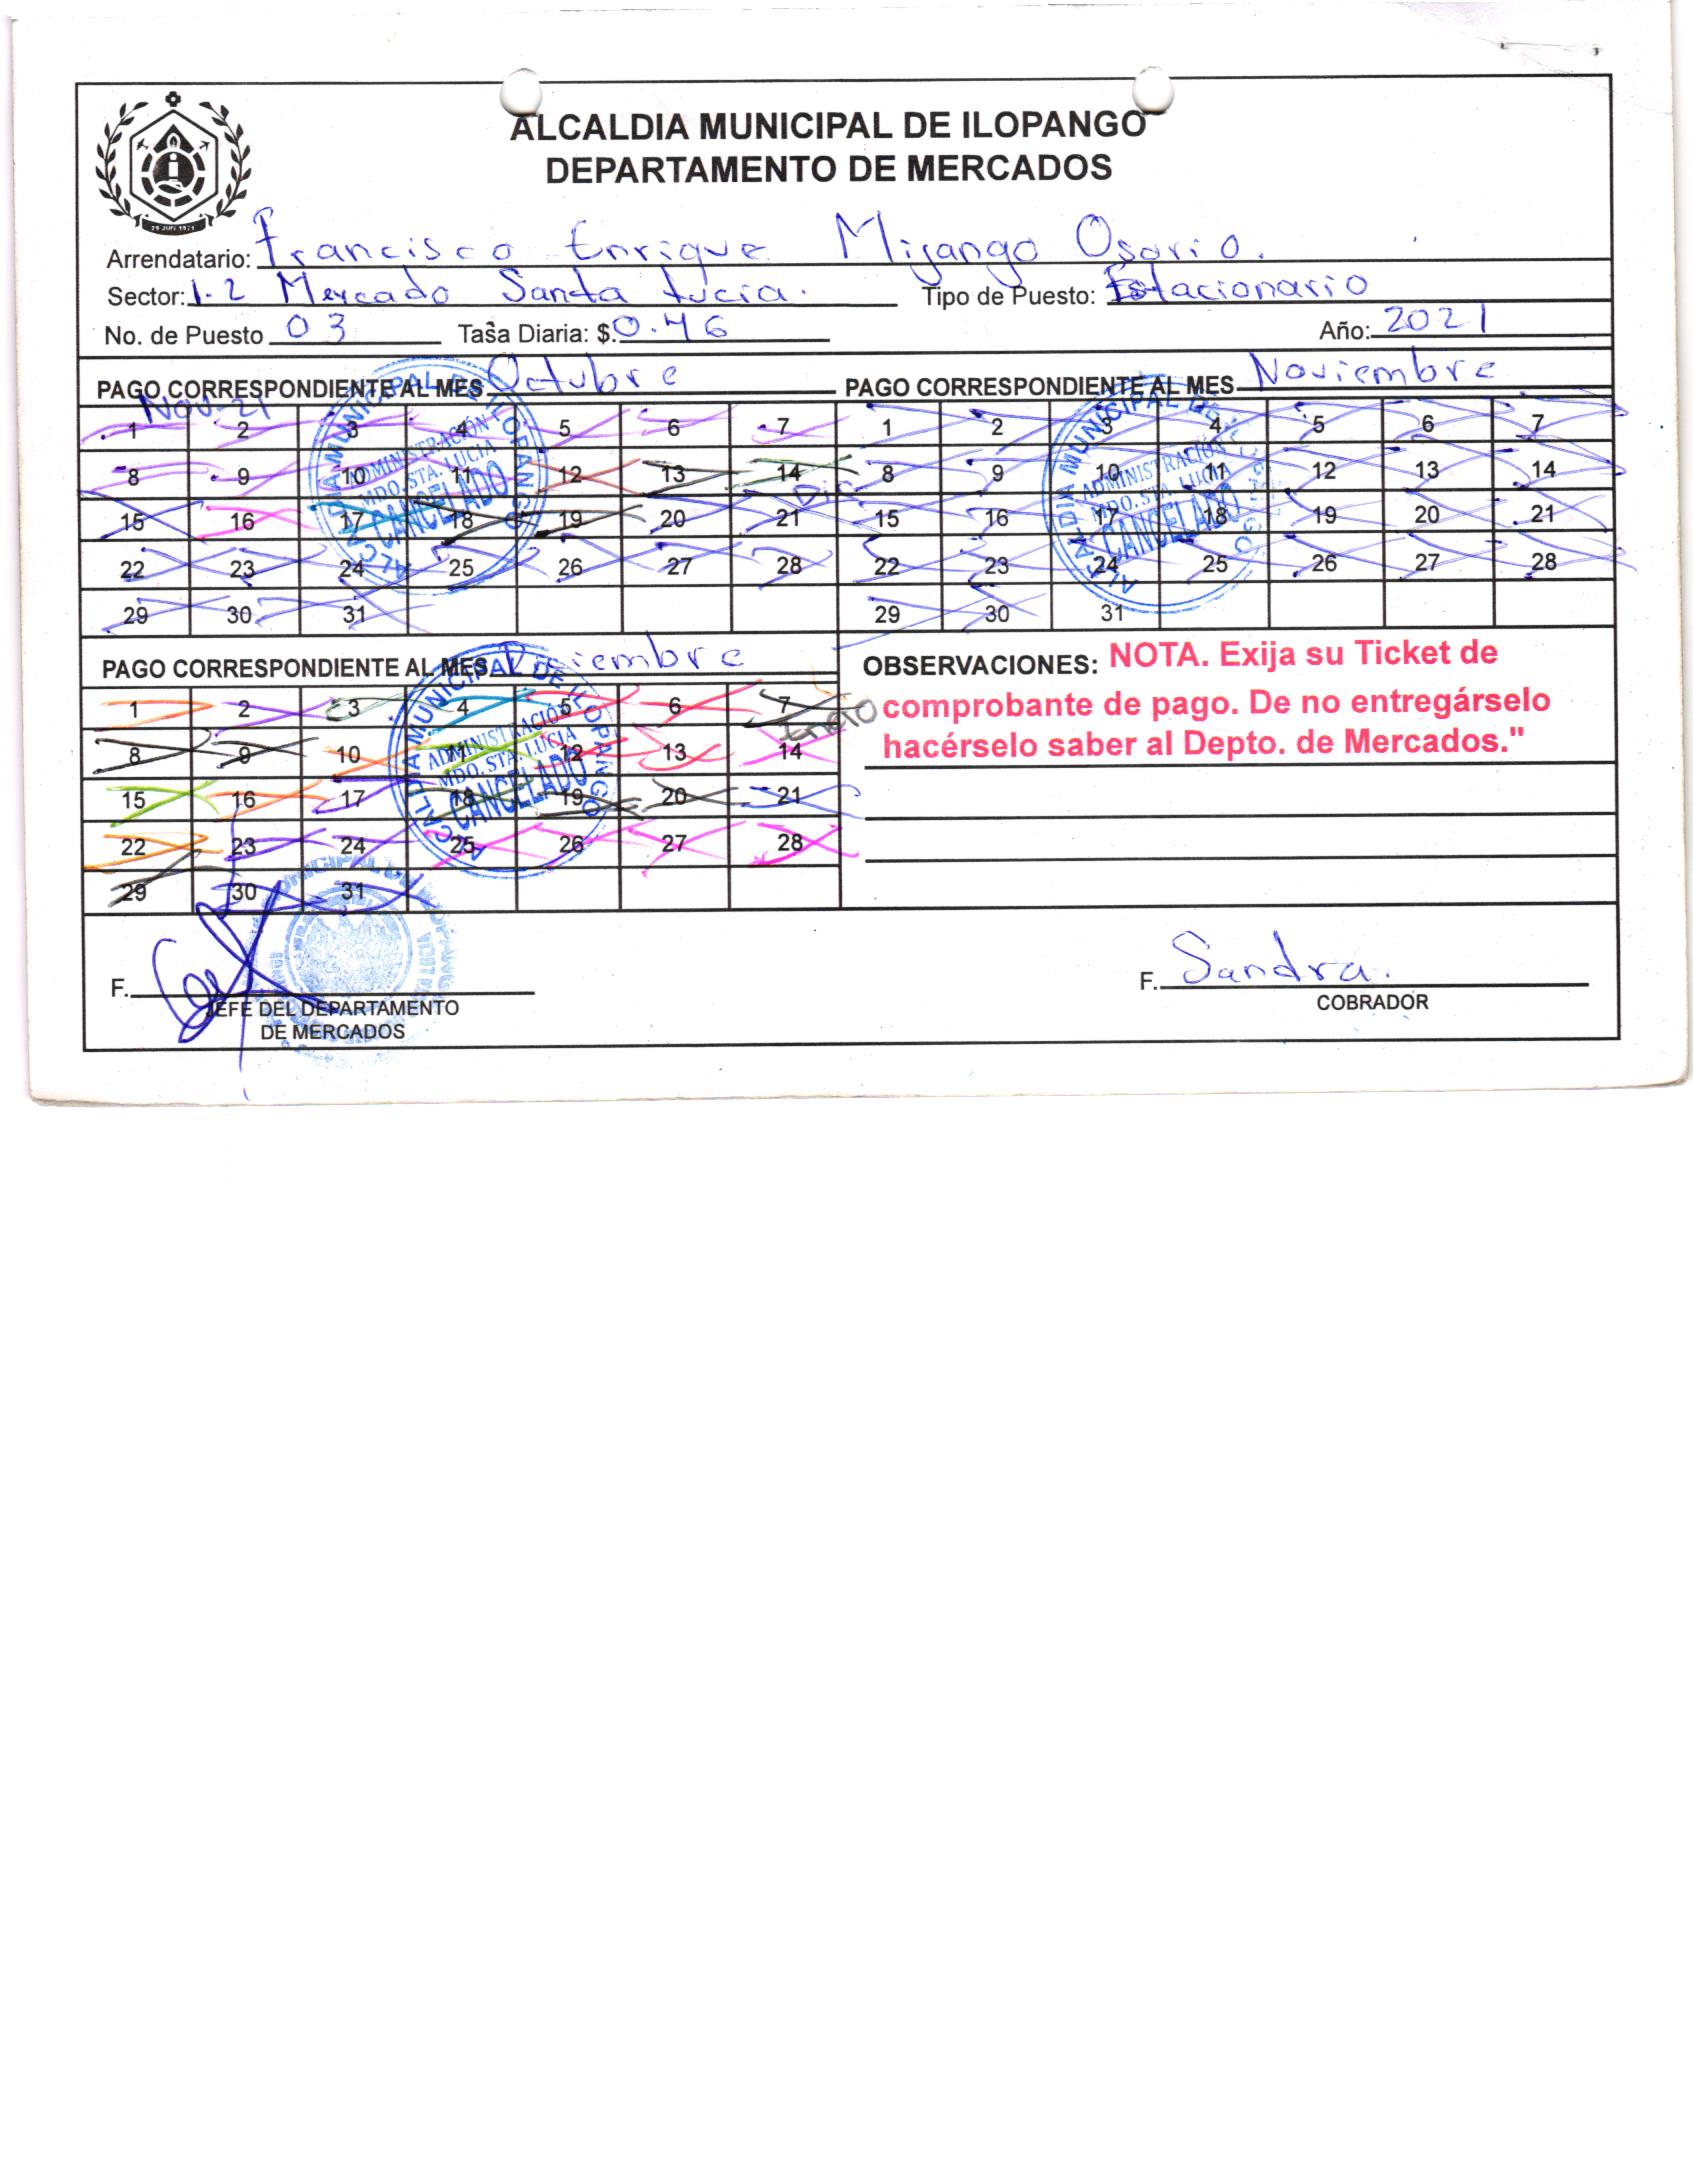 ALCALDIA MUNICIPAL DE ILOPANGO
DEPARTAMENTO DE MERCADOS
Arrendatario: Francisco Enrique Mijango Osorio.
Sector: 1-2 Mercado Santa Lucia. Tipo de Puesto: Estacionario
No. de Puesto 03 Tasa Diaria: $.0.46 Año: 2021
PAGO CORRESPONDIENTE AL MES Octubre
Nov-21
1 2 3 4 5 6 7
8 9 10 11 12 13 14
15 16 17 18 19 20 21
22 23 24 25 26 27 28
29 30 31
ALCALDIA MUNICIPAL DE ILOPANGO
ADMINISTRACIÓN
MDO. STA. LUCIA
CANCELADO
PAGO CORRESPONDIENTE AL MES Noviembre
1 2 3 4 5 6 7
Dic.
8 9 10 11 12 13 14
15 16 17 18 19 20 21
22 23 24 25 26 27 28
29 30 31
ALCALDIA MUNICIPAL DE ILOPANGO
ADMINISTRACIÓN
MDO. STA. LUCIA
CANCELADO
PAGO CORRESPONDIENTE AL MES Diciembre
1 2 3 4 5 6 7
Enero
8 9 10 11 12 13 14
15 16 17 18 19 20 21
22 23 24 25 26 27 28
29 30 31
ALCALDIA MUNICIPAL DE ILOPANGO
ADMINISTRACIÓN
MDO. STA. LUCIA
CANCELADO
OBSERVACIONES: NOTA. Exija su Ticket de
comprobante de pago. De no entregárselo
hacérselo saber al Depto. de Mercados."
F.
JEFE DEL DEPARTAMENTO
DE MERCADOS
F. Sandra.
COBRADOR